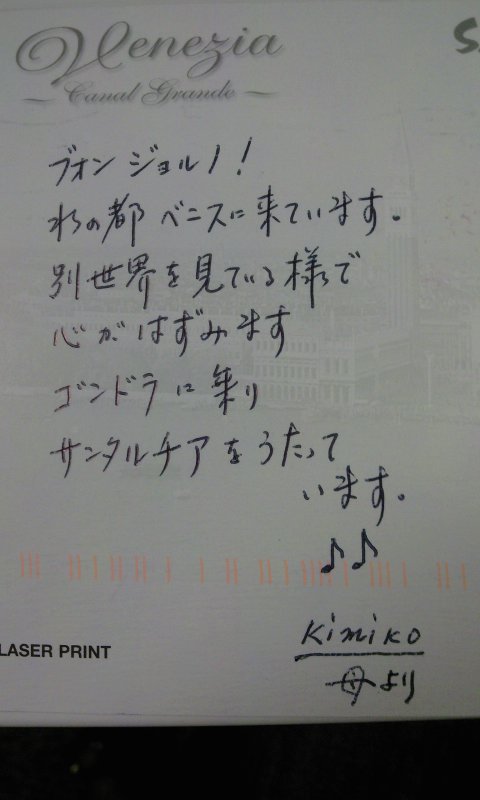 Venezia
Canal Grande
S
ブオンジョルノ!
水の都ベニスに来ています。
別世界を見ている様で
心がはずみます
ゴンドラに乗り
サンタルチアをうたって
います。
♪♪
Kimiko
母より
LASER PRINT